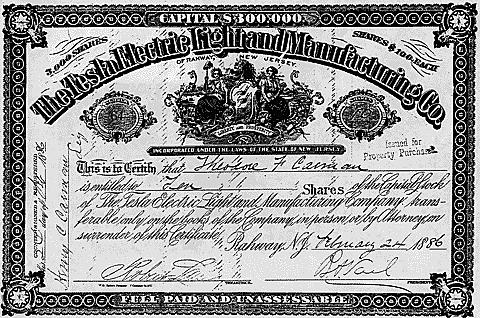 CAPITAL $300,000.
3,000 SHARES
SHARES $100 EACH
The Tesla Electric Light and Manufacturing Co.
OF RAHWAY, NEW JERSEY.
LIBERTY AND PROSPERITY
INCORPORATED UNDER THE LAWS OF THE STATE OF NEW JERSEY.
Issued for
Property Purchased
This is to Certify that Theodore F Carman
is entitled to Ten Shares of the Capital Stock
of The Tesla Electric Light and Manufacturing Company, trans-
ferable only on the books of the Company, in person, or by Attorney, on
surrender of this Certificate.
Rahway, N.J. February 24 1886
TREASURER.
PRESIDENT.
FULL PAID AND UNASSESSABLE